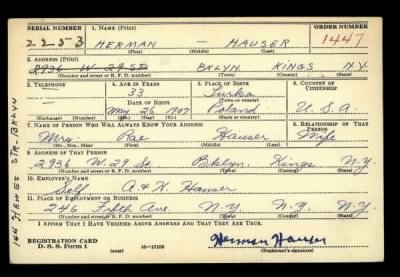 SERIAL NUMBER 1. NAME (Print) ORDER NUMBER
2253 HERMAN — HAUSER 1447
(First) (Middle) (Last)
2. ADDRESS (Print)
2936 W 29 ST BKLYN KINGS N.Y.
(Number and street or R. F. D. number) (Town) (County) (State)
3. TELEPHONE 4. AGE IN YEARS 5. PLACE OF BIRTH 6. COUNTRY OF CITIZENSHIP
33 Turka
DATE OF BIRTH (Town or county)
May 26 1907 Poland U.S.A.
(Exchange) (Number) (Mo.) (Day) (Yr.) (State or country)
7. NAME OF PERSON WHO WILL ALWAYS KNOW YOUR ADDRESS 8. RELATIONSHIP OF THAT PERSON
Mrs. Rae Hauser Wife
(Mr., Mrs., Miss) (First) (Middle) (Last)
9. ADDRESS OF THAT PERSON
2936 W. 29 St. Bklyn. Kings N.Y.
(Number and street or R. F. D. number) (Town) (County) (State)
10. EMPLOYER'S NAME
Self A. & H. Hauser
11. PLACE OF EMPLOYMENT OR BUSINESS
246 Fifth Ave. N.Y. N.Y. N.Y.
(Number and street or R. F. D. number) (Town) (County) (State)
I AFFIRM THAT I HAVE VERIFIED ABOVE ANSWERS AND THAT THEY ARE TRUE.
REGISTRATION CARD
D. S. S. Form 1 (over) 16—17105 Herman Hauser
(Registrant's signature)
144 HEWES STR. BKLYN